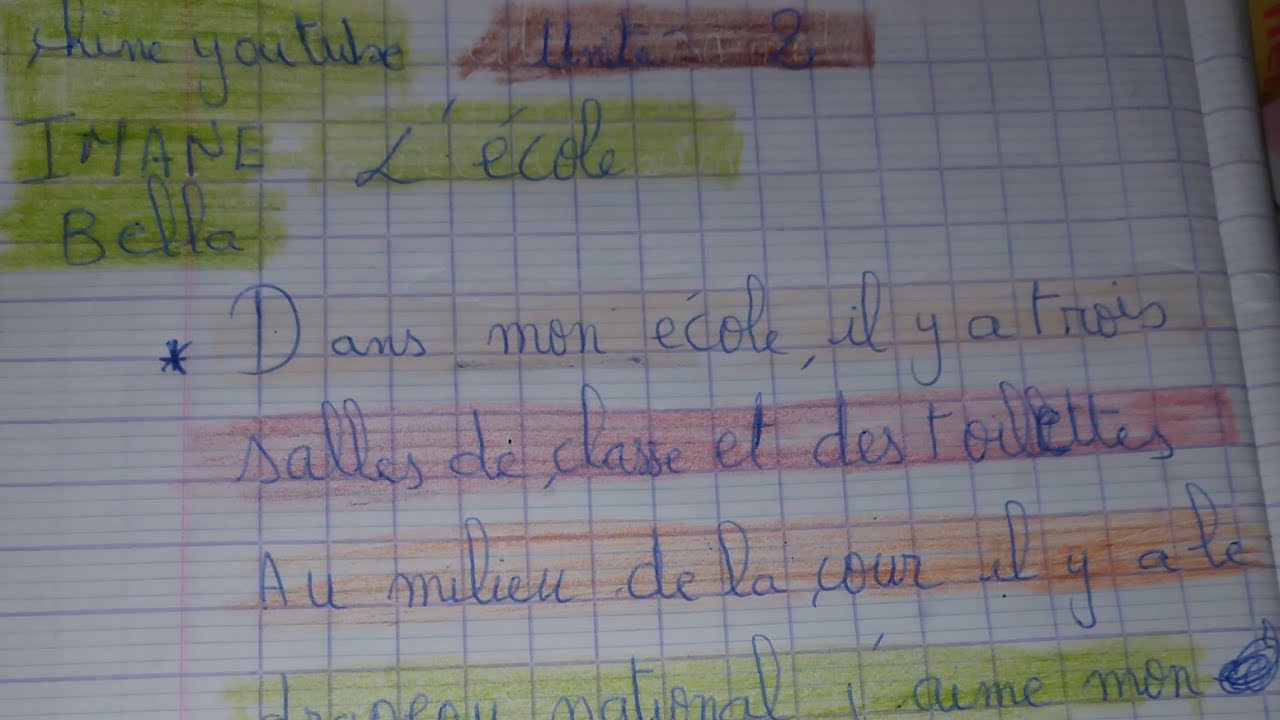 chine youtube Unité 2
IMANE L'école
Bella
* Dans mon école, il y a trois
salles de classe et des toilettes
Au milieu de la cour il y a le
drapeau national j'aime mon